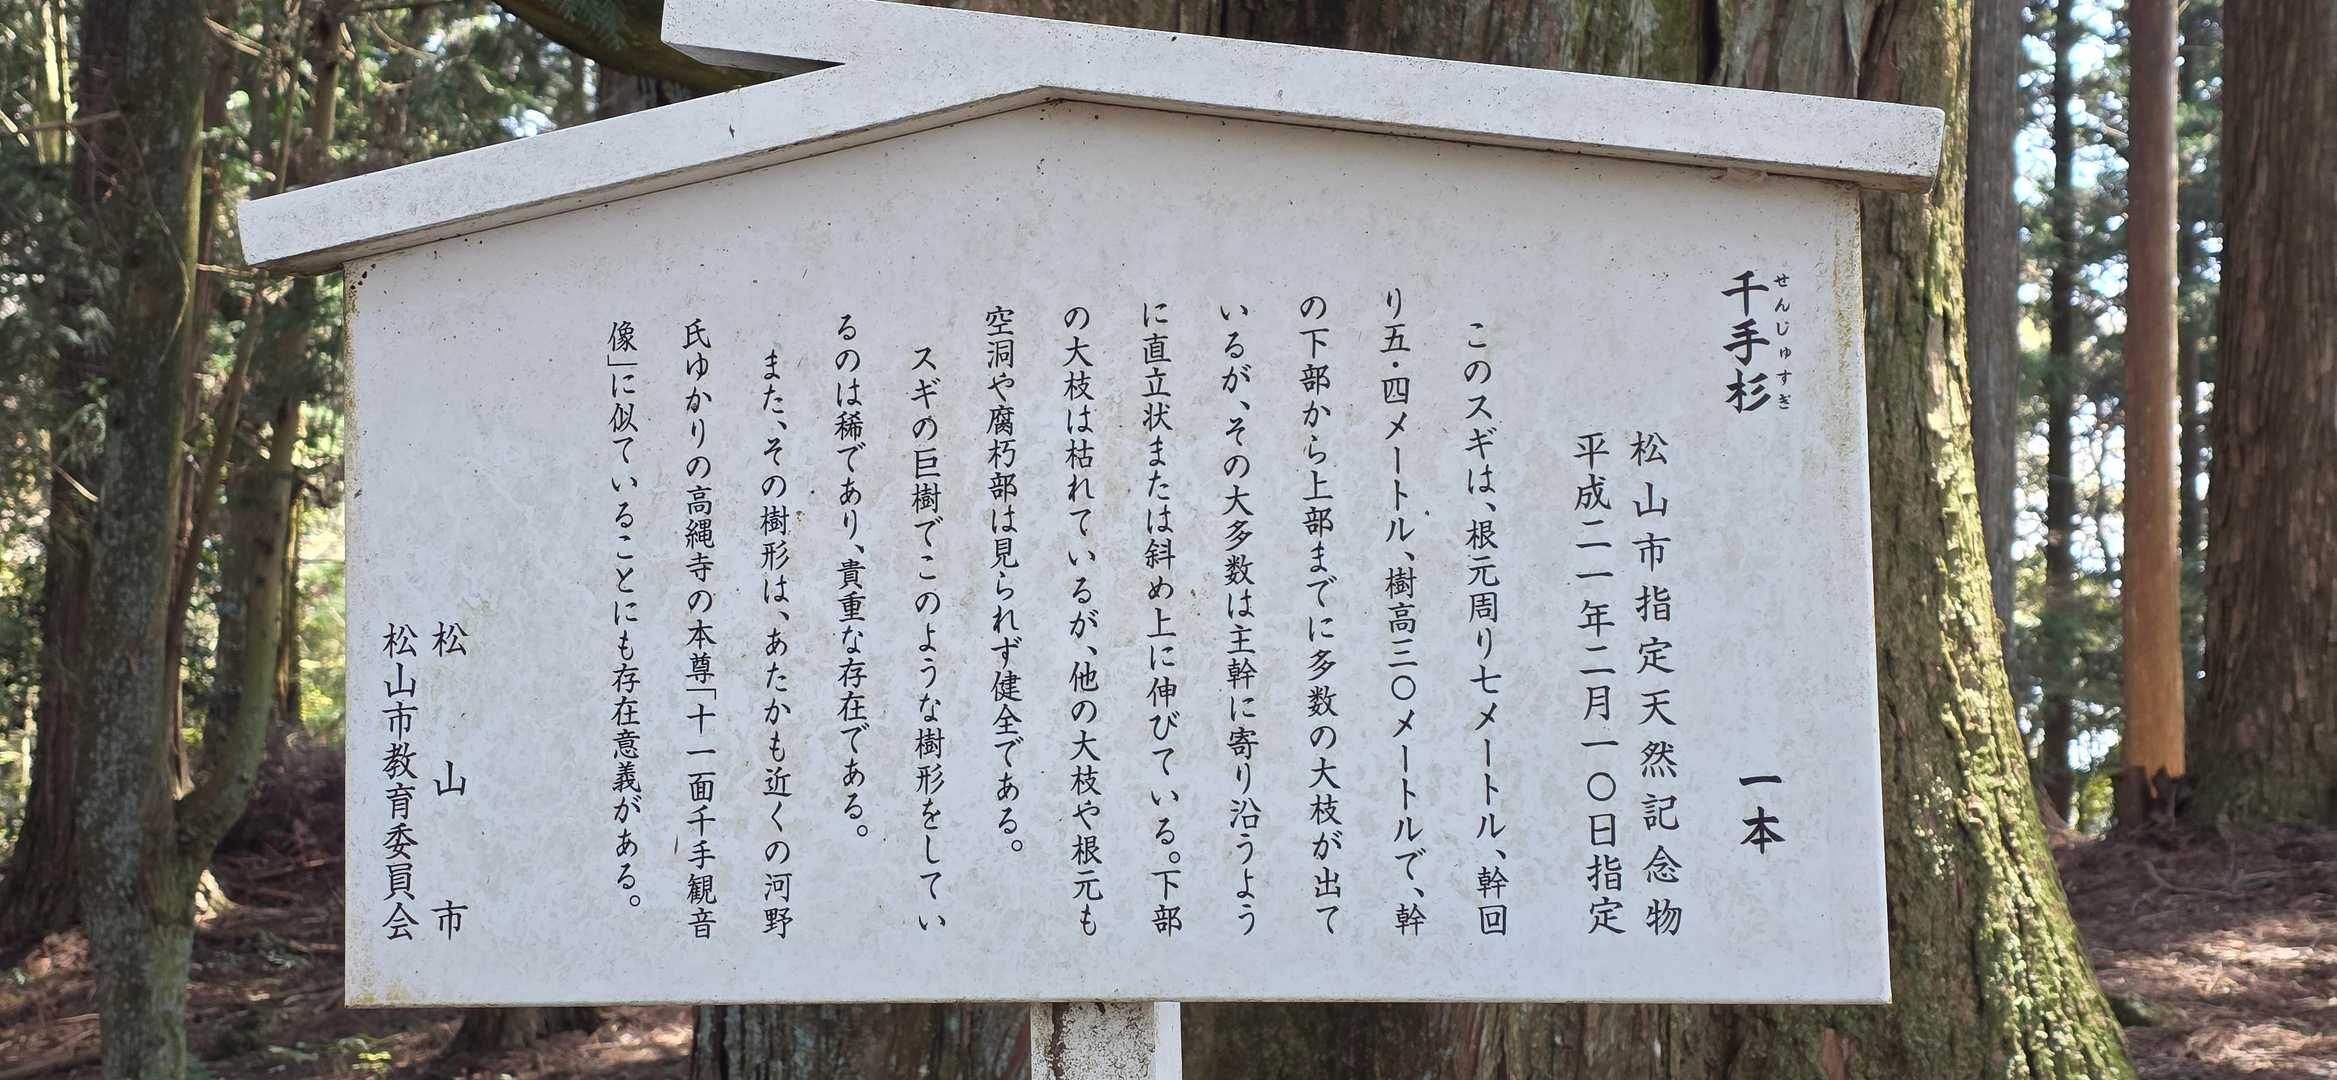 せんじゅすぎ
千手杉　一本
松山市指定天然記念物
平成二一年二月一〇日指定
このスギは、根元周り七メートル、幹回
り五・四メートル、樹高三〇メートルで、幹
の下部から上部までに多数の大枝が出て
いるが、その大多数は主幹に寄り沿うよう
に直立状または斜め上に伸びている。下部
の大枝は枯れているが、他の大枝や根元も
空洞や腐朽部は見られず健全である。
スギの巨樹でこのような樹形をしてい
るのは稀であり、貴重な存在である。
また、その樹形は、あたかも近くの河野
氏ゆかりの高縄寺の本尊「十一面千手観音
像」に似ていることにも存在意義がある。
松山市
松山市教育委員会